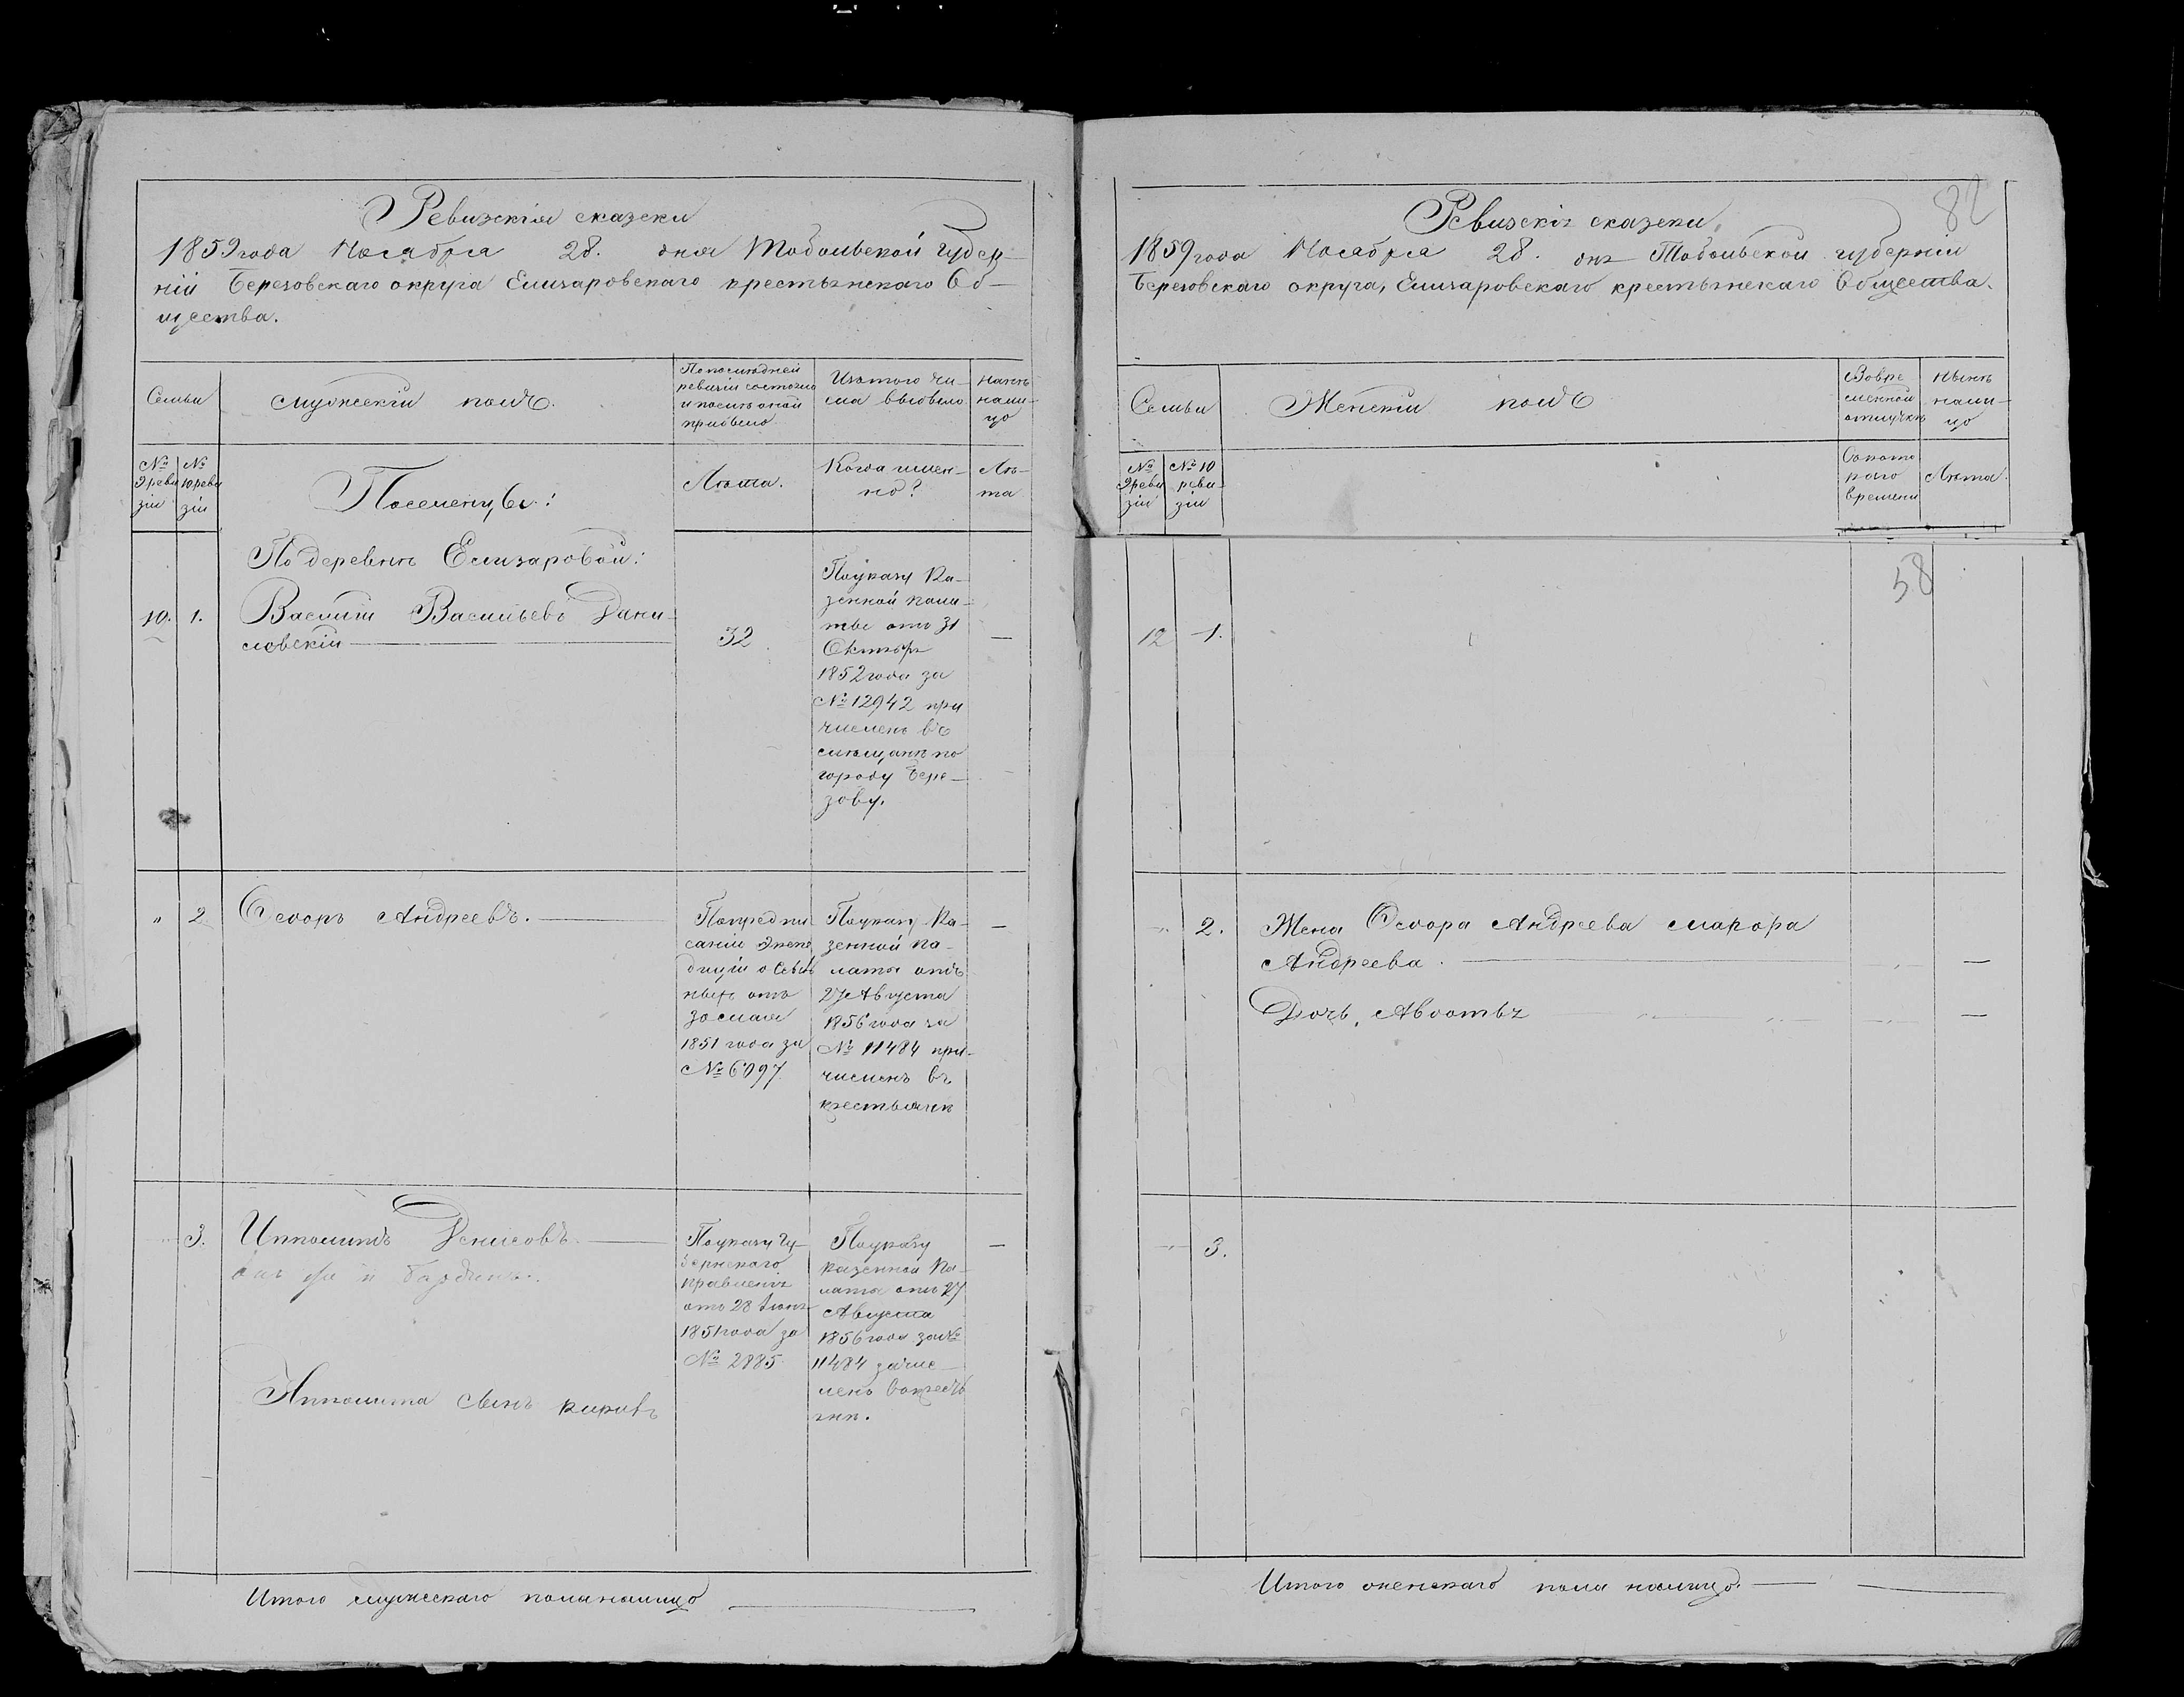 Ревизскія сказки
1859 года Ноября 28. дня Тобольской Губер-
ніи Березовскаго округа Елизаровскаго крестьянскаго Об-
щества.
Семьи
Мужескій полъ.
По последней
ревизіи состояло
и после оной
прибыло
Изътого чи-
сла выбыло
Нынѣ
нали-
цо
№ 9 реви зіи
№ 10 реви зіи
Поселенцы:
Лѣта.
Когда имен-
но?
Лѣ-
та
По деревнѣ Елизаровой:
10. 1.
Василій Васильевъ Дани-
ловскій
32
По указу Ка-
зенной пала-
ты отъ 31
Октября
1852 года за
№ 12942 при
численъ въ
мещане по
городу Бере-
зову.
—
" 2.
Ѳедоръ Андреевъ.
По предпи
санію Экспе
диціи о ссыль
ныхъ отъ
30 мая
1851 года за
№ 6097
По указу Ка-
зенной па-
латы отъ
27 Августа
1856 года за
№ 11484 при-
численъ въ
крестьяне
—
" 3.
Ипполитъ Денисовъ
онъ же и
По указу Гу-
бернскаго
правленія
отъ 28 Іюня
1851 года за
№ 2885
По указу
казенной Па-
латы отъ 27
Августа
1856 года за №
11484 зачис-
ленъ
—
Ипполита сынъ
Итого мужескаго пола налицо
82
Ревизскія сказки
1859 года Ноября 28. дня Тобольской губерніи
Березовскаго округа, Елизаровскаго крестьянскаго Общества.
Семьи
Женскій полъ
Во вре
менной
отлучкѣ
Нынѣ
нали-
цо
№ 9 реви зіи
№ 10 реви зіи
Съ кото
раго
времени
Лѣта.
58
12 1.
" 2.
Жена Ѳедора Андреева Мавра
Андреева. —
Дочь, Авдотья " " " —
" 3.
Итого женскаго пола налицо. —